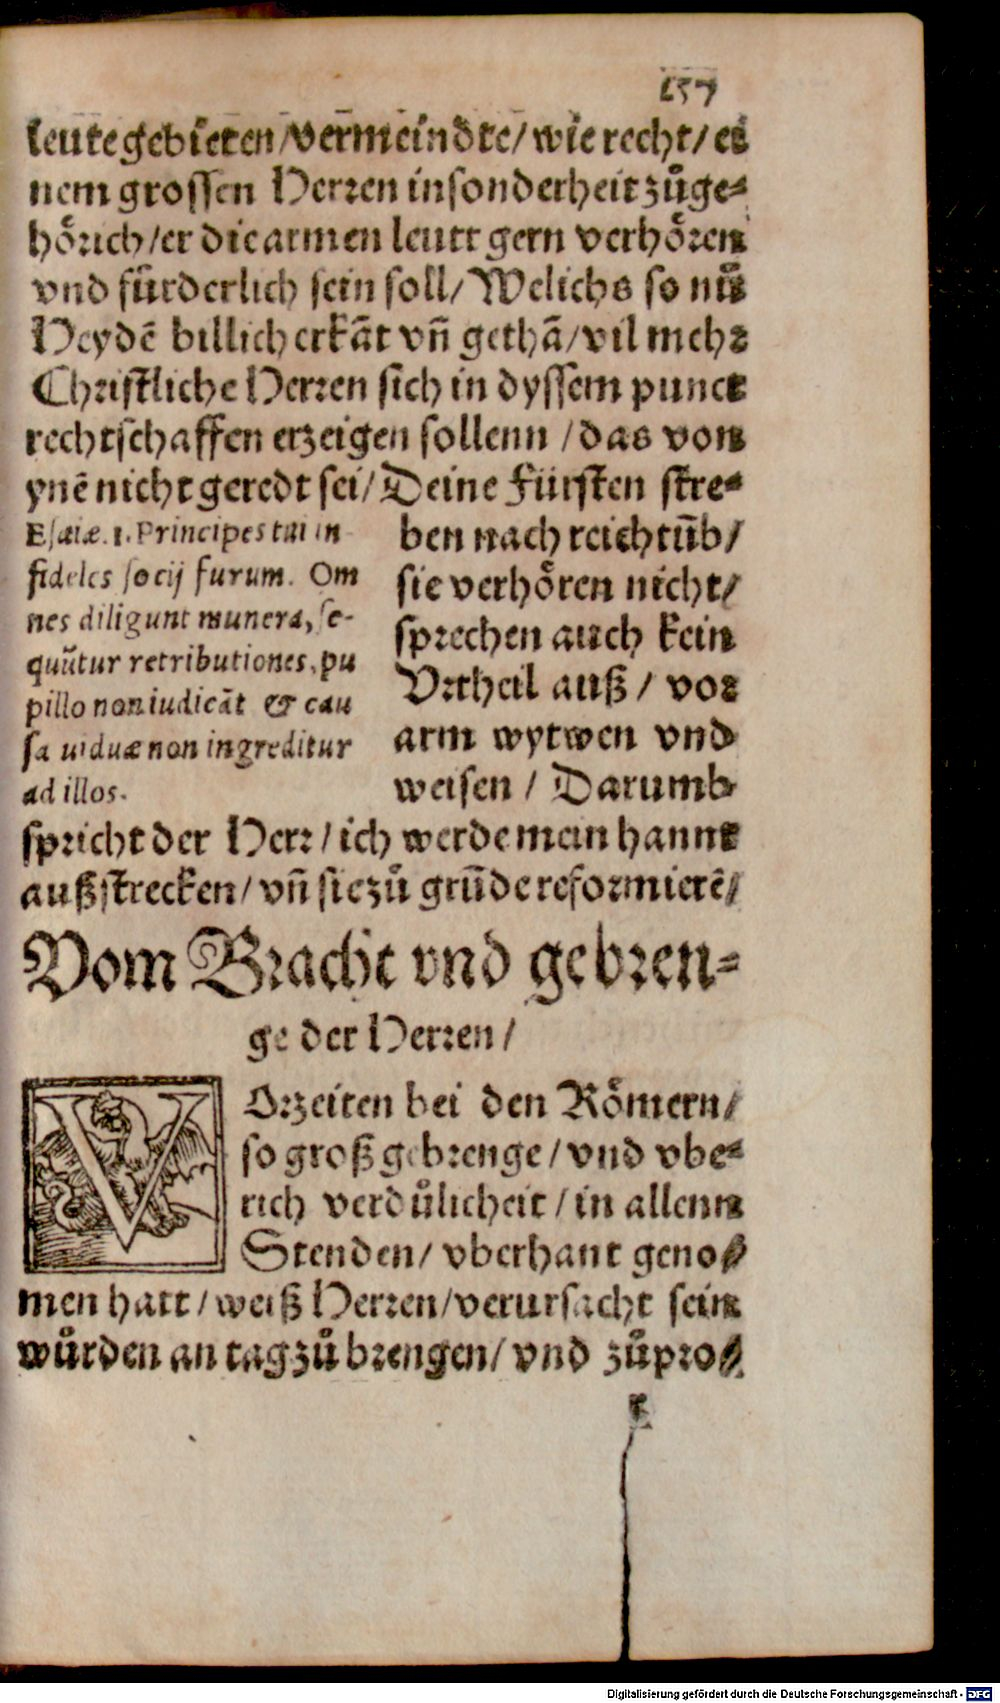 157
leute gebieten / vermeindte / wie recht / ei
nem grossen Herren insonderheit zůge⸗
hoͤrich / er die armen leutt gern verhoͤren
vnd fürderlich sein soll / Welichs so nuͤ
Heydē billich erkāt vn̄ gethā / vil mehr
Christliche Herren sich in dyssem punct
rechtschaffen erzeigen sollenn / das von
ynē nicht geredt sei / Deine Fürsten stre⸗
ben nach reichtūb /
sie verhoͤren nicht /
sprechen auch kein
Vrtheil auß / vor
arm wytwen vnd
weisen / Darumb
Esaiæ. 1. Principes tui in
fideles socij furum. Om
nes diligunt munera, se-
quūtur retributiones, pu
pillo non iudicāt & cau
sa uiduæ non ingreditur
ad illos.
spricht der Herr / ich werde mein hannt
außstrecken / vn̄ sie zů grūde reformierē /
Vom Bracht vnd gebren⸗
ge der Herren /
VOrzeiten bei den Roͤmern /
so groß gebrenge / vnd vbe⸗
rich verdůlicheit / in allenn
Stenden / vberhant geno⸗
men hatt / weiß Herren / verursacht sein
würden an tag zů brengen / vnd zůpro⸗
Digitalisierung gefördert durch die Deutsche Forschungsgemeinschaft - DFG